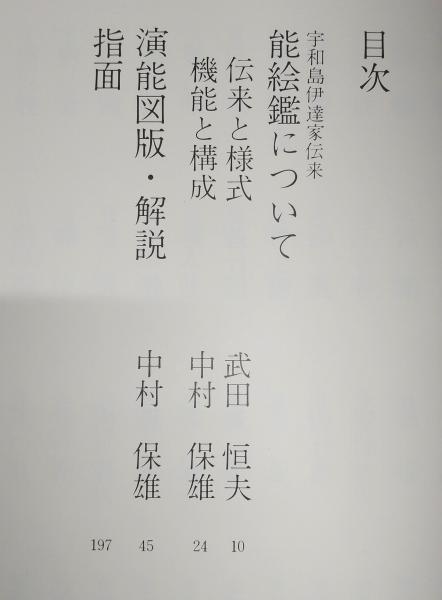 目次
宇和島伊達家伝来
能絵鑑について
伝来と様式 武田 恒夫 10
機能と構成 中村 保雄 24
演能図版・解説 中村 保雄 45
指面 197